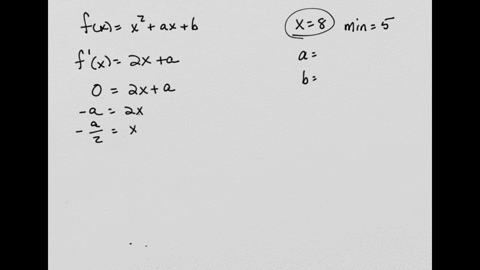 f(x) = x² + ax + b
f'(x) = 2x + a
0 = 2x + a
-a = 2x
-a/2 = x
x = 8 min = 5
a =
b =